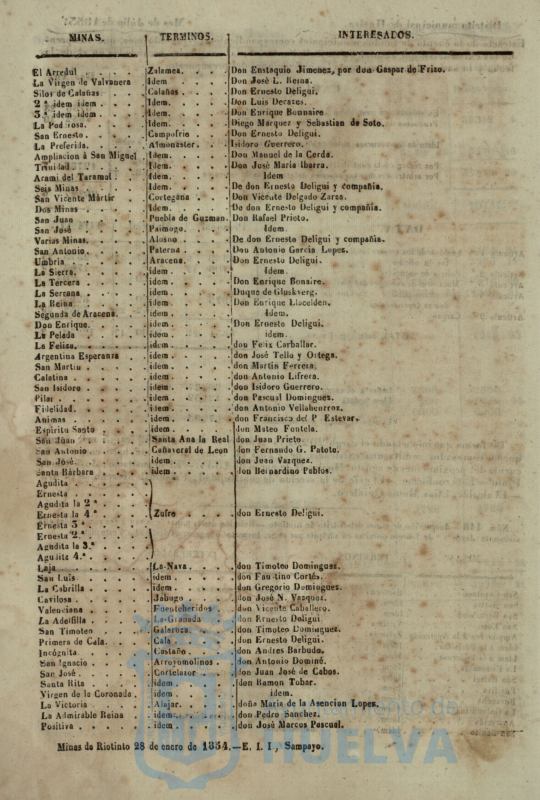 MINAS. TERMINOS. INTERESADOS.
El Arredul . . . . Zalamea. . . . Don Eustaquio Jimenez, por don Gaspar de Frizo.
La Virgen de Valvanera Idem . . . . Don José L. Reina.
Silos de Calañas. . . . Calañas . . . . Don Ernesto Deligui.
2.ª idem idem . . . Idem. . . . . Don Luis Decazes.
3.ª idem idem . . . Idem. . . . . Don Enrique Bonnaire
La Pod rosa. . . . . Idem. . . . . Diego Marquez y Sebastian de Soto.
San Ernesto. . . . . Campofrio . . . Don Ernesto Deligui.
La Preferida. . . . . Almonaster. . . Isidoro Guerrero.
Ampliacion á San Miguel Idem. . . . . Don Manuel de la Corda.
Trinidad . . . . . Idem. . . . . Don José Maria Ibarra.
Arami del Taramal . . Idem. . . . . Idem
Seis Minas . . . . . Idem. . . . . De don Ernesto Deligui y compañia.
San Vicente Mártir . . Cortegana . . . Don Vicente Delgado Zarza.
Dos Minas . . . . . Idem. . . . . De don Ernesto Deligui y compañia.
San Juan . . . . . Puebla de Guzman. Don Rafael Prieto.
San José . . . . . Paimogo. . . . Idem
Varias Minas. . . . . Alosno . . . . De don Ernesto Deligui y compañia.
San Antonio. . . . . Paterna . . . . Don Antonio Garcia Lopez.
Umbria . . . . . Aracena. . . . Don Ernesto Deligui.
La Sierra. . . . . . idem. . . . . Idem.
La Tercera . . . . . idem. . . . . Don Enrique Bonaire.
La Serrana . . . . . idem. . . . . Duque de Glusberg.
La Reina . . . . . idem. . . . . Don Enrique Llscelden.
Segunda de Aracena. . idem. . . . . Idem.
Don Enrique. . . . . idem. . . . . Don Ernesto Deligui.
La Pelada . . . . . idem. . . . . idem.
La Feliza. . . . . . idem. . . . . don Felix Carballar.
Argentina Esperanza idem. . . . . don José Tello y Ortega.
San Martin . . . . . idem. . . . . don Martin Ferrera.
Calatina . . . . . idem. . . . . don Antonio Lifrera.
San Isidoro . . . . . idem. . . . . don Isidoro Guerrero.
Pilar . . . . . . idem. . . . . don Pascual Dominguez.
Fidelidad. . . . . . idem. . . . . don Antonio Vellahenrroz.
Animas . . . . . idem. . . . . don Francisco del P Estevar.
Espiritu Santo . . . . idem. . . . . don Mateo Fontela.
San Juan . . . . . Santa Ana la Real don Juan Prieto
San Antonio . . . . Cañaveral de Leon don Fernando G. Patoto.
San José. . . . . . idem. . . . . don Juan Vazquez.
Santa Bárbara . . . . idem. . . . . don Bernardino Pablos.
Agudita . . . . .
Ernesta . . . . .
Agudita la 2.ª . . .
Ernesta la 4.ª . . . Zufre . . . . don Ernesto Deligui.
Ernesta 3.ª . . . .
Ernesta 2.ª. . . . .
Agudita la 3.ª . . .
Agudita 4.ª. . . . .
Laja . . . . . . La Nava . . . . don Timoteo Dominguez.
San Luis . . . . . idem . . . . don Faustino Cortés.
La Cabrilla . . . . . idem . . . . don Gregorio Dominguez.
Cavilosa . . . . . Jabugo . . . . don José N. Vazquez.
Valenciana . . . . . Fuenteheridos . . don Vicente Caballero.
La Adelfilla . . . . La Granada . . . don Ernesto Deligui
San Timoteo . . . . Galaroza. . . . don Timoteo Dominguez.
Primera de Cala. . . . Cala . . . . don Ernesto Deligui.
Incógnita. . . . . . Castaño. . . . don Andres Barbudo.
San Ignacio . . . . Arroyomolinos . . don Antonio Dominé.
San José. . . . . . Cortelazor . . . don Juan José de Cobos.
Santa Rita . . . . . idem . . . . don Ramon Tobar.
Virgen de la Coronada. idem . . . . idem.
La Victoria . . . . Alajar. . . . . doña Maria de la Asencion Lopez.
La Admirable Reina . . idem. . . . . don Pedro Sanchez.
Positiva . . . . . idem. . . . . don José Marcos Pascual.
Minas de Riotinto 28 de enero de 1854.—E. I. I., Sampayo.
HUELVA